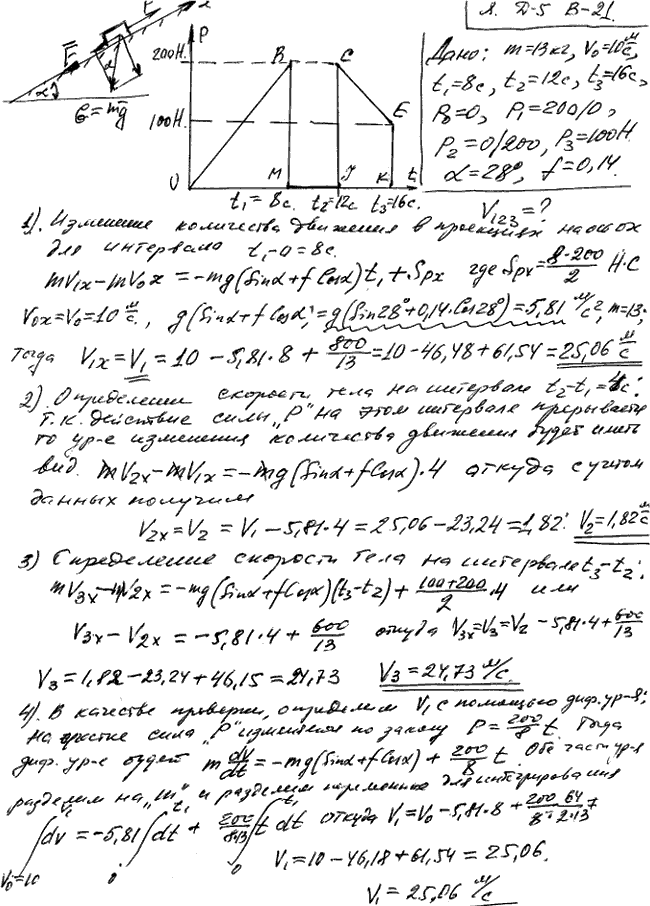 Я. Д-5 В-21.
Дано: m=13кг, V₀=10 м/с,
t₁=8с, t₂=12с, t₃=16с,
P₀=0, P₁=200/0,
P₂=0/200, P₃=100Н.
α=28°, f=0,14.
V₁₂₃=?
F
x
P
200Н.
B
C
F
α
α
G=mg
100Н.
E
0
M
J
K
t
t₁=8с. t₂=12с t₃=16с.
1). Изменение количества движения в проекциях на ось ox
для интервала t₁-0=8с.
mV₁x-mV₀x=-mg(Sinα+fCosα)t₁+Spx где Spx=8·200/2 Н·С
V₀x=V₀=10 м/с., g(Sinα+fCosα)=g(Sin28°+0,14·Cos28°)=5,81 м/с², m=13;
Тогда V₁x=V₁=10-5,81·8+800/13=10-46,48+61,54=25,06 м/с
2). Определение скорости тела на интервале t₂-t₁=4с.
Т.к. действие силы „P" на этом интервале прерывается
то ур-е изменения количества движения будет иметь
вид. mV₂x-mV₁x=-mg(Sinα+fCosα)·4 откуда с учётом
данных получим
V₂x=V₂=V₁-5,81·4=25,06-23,24=1,82. V₂=1,82 м/с
3) Определение скорости тела на интервале t₃-t₂:
mV₃x-mV₂x=-mg(Sinα+fCosα)(t₃-t₂)+(100+200)/2·4 или
V₃x-V₂x=-5,81·4+600/13 откуда V₃x=V₃=V₂-5,81·4+600/13
V₃=1,82-23,24+46,15=24,73 V₃=24,73 м/с.
4). В качестве проверки, определим V₁ с помощью диф. ур-я;
на участке сила „P" изменяется по закону P=200/8 t. Тогда
диф. ур-е будет m dv/dt=-mg(Sinα+fCosα)+200/8 t. Обе части ур-я
разделим на „m" и разделим переменные для интегрирования
∫dv=-5,81∫dt+200/8·13∫t dt откуда V₁=V₀-5,81·8+200·64/8·2·13=
V₀=10 0 0 V₁ t₁ t₁
V₁=10-46,18+61,54=25,06.
V₁=25,06 м/с